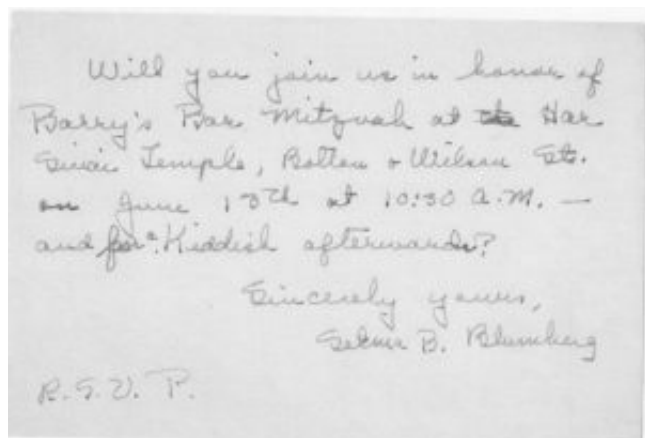 Will you join us in honor of
Barry's Bar Mitzvah at the Har
Sinai Temple, Bolton & Wilson Sts.
on June 13th at 10:30 A.M. —
and for a Kiddish afterwards?
Sincerely yours,
Selma B. Blumberg
R.S.V.P.